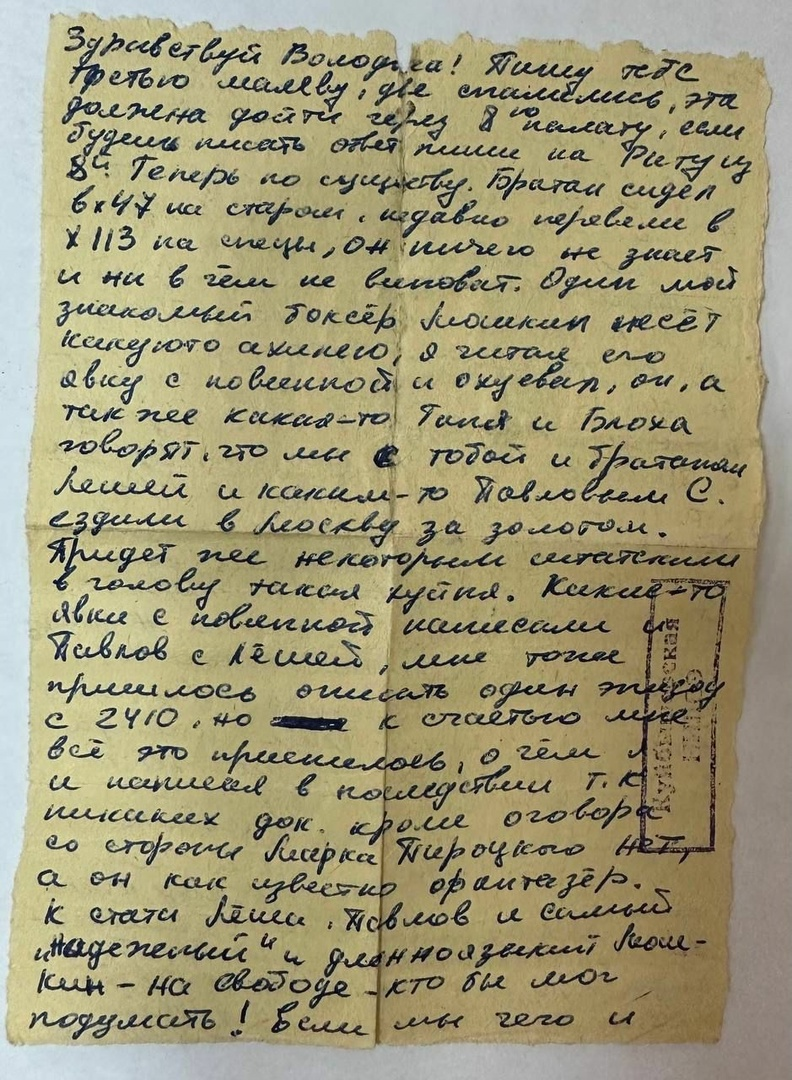 Здравствуй Володька! Пишу тебе
третью маляву, две спалились, эта
должна дойти через 8ю палату, если
будешь писать ответ пиши на Риту из
8й. Теперь по существу. Братан сидел
в х47 на старом, недавно перевели в
х 113 на спецы, он ничего не знает
и ни в чём не виноват. Один мой
знакомый боксёр Мошкин несёт
какуюто ахинею, я читал его
явку с повинной и охуевал, он, а
так же какая-то Таня и Блоха
говорят, что мы с тобой и братаном
Лёшей и каким-то Павловым С.
ездили в Москву за золотом.
Придет же некоторым штатским
в голову такая хуйня. Какие-то
явки с повинной написали и
Павлов с Лёшей, мне тоже
пришлось описать один эпизод
с 2410, но к счастью мне
всё это приснилось, о чём я
и написал в последствии т.к
никаких док. кроме оговора
со стороны Марка Пироцкого нет,
а он как известно фантазёр.
К стати Лёша, Павлов и самый
"надежный" и длинноязыкий Мош-
кин - на свободе - кто бы мог
подумать! Если мы чего и
Куйбышевская